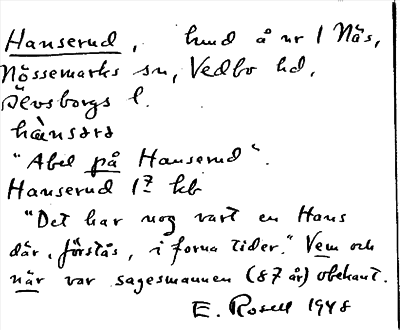 Hanserud, hmd å nr 1 Näs,
Nössemarks sn, Vedbo hd,
Älvsborgs l.
hà̀nsərə
"Abel på Hanserud".
Hanserud 1⁷ kb
"Det har nog vart en Hans
där, förstås, i forna tider." Vem och
när var sagesmannen (87 år) obekant.
E. Rosell 1948